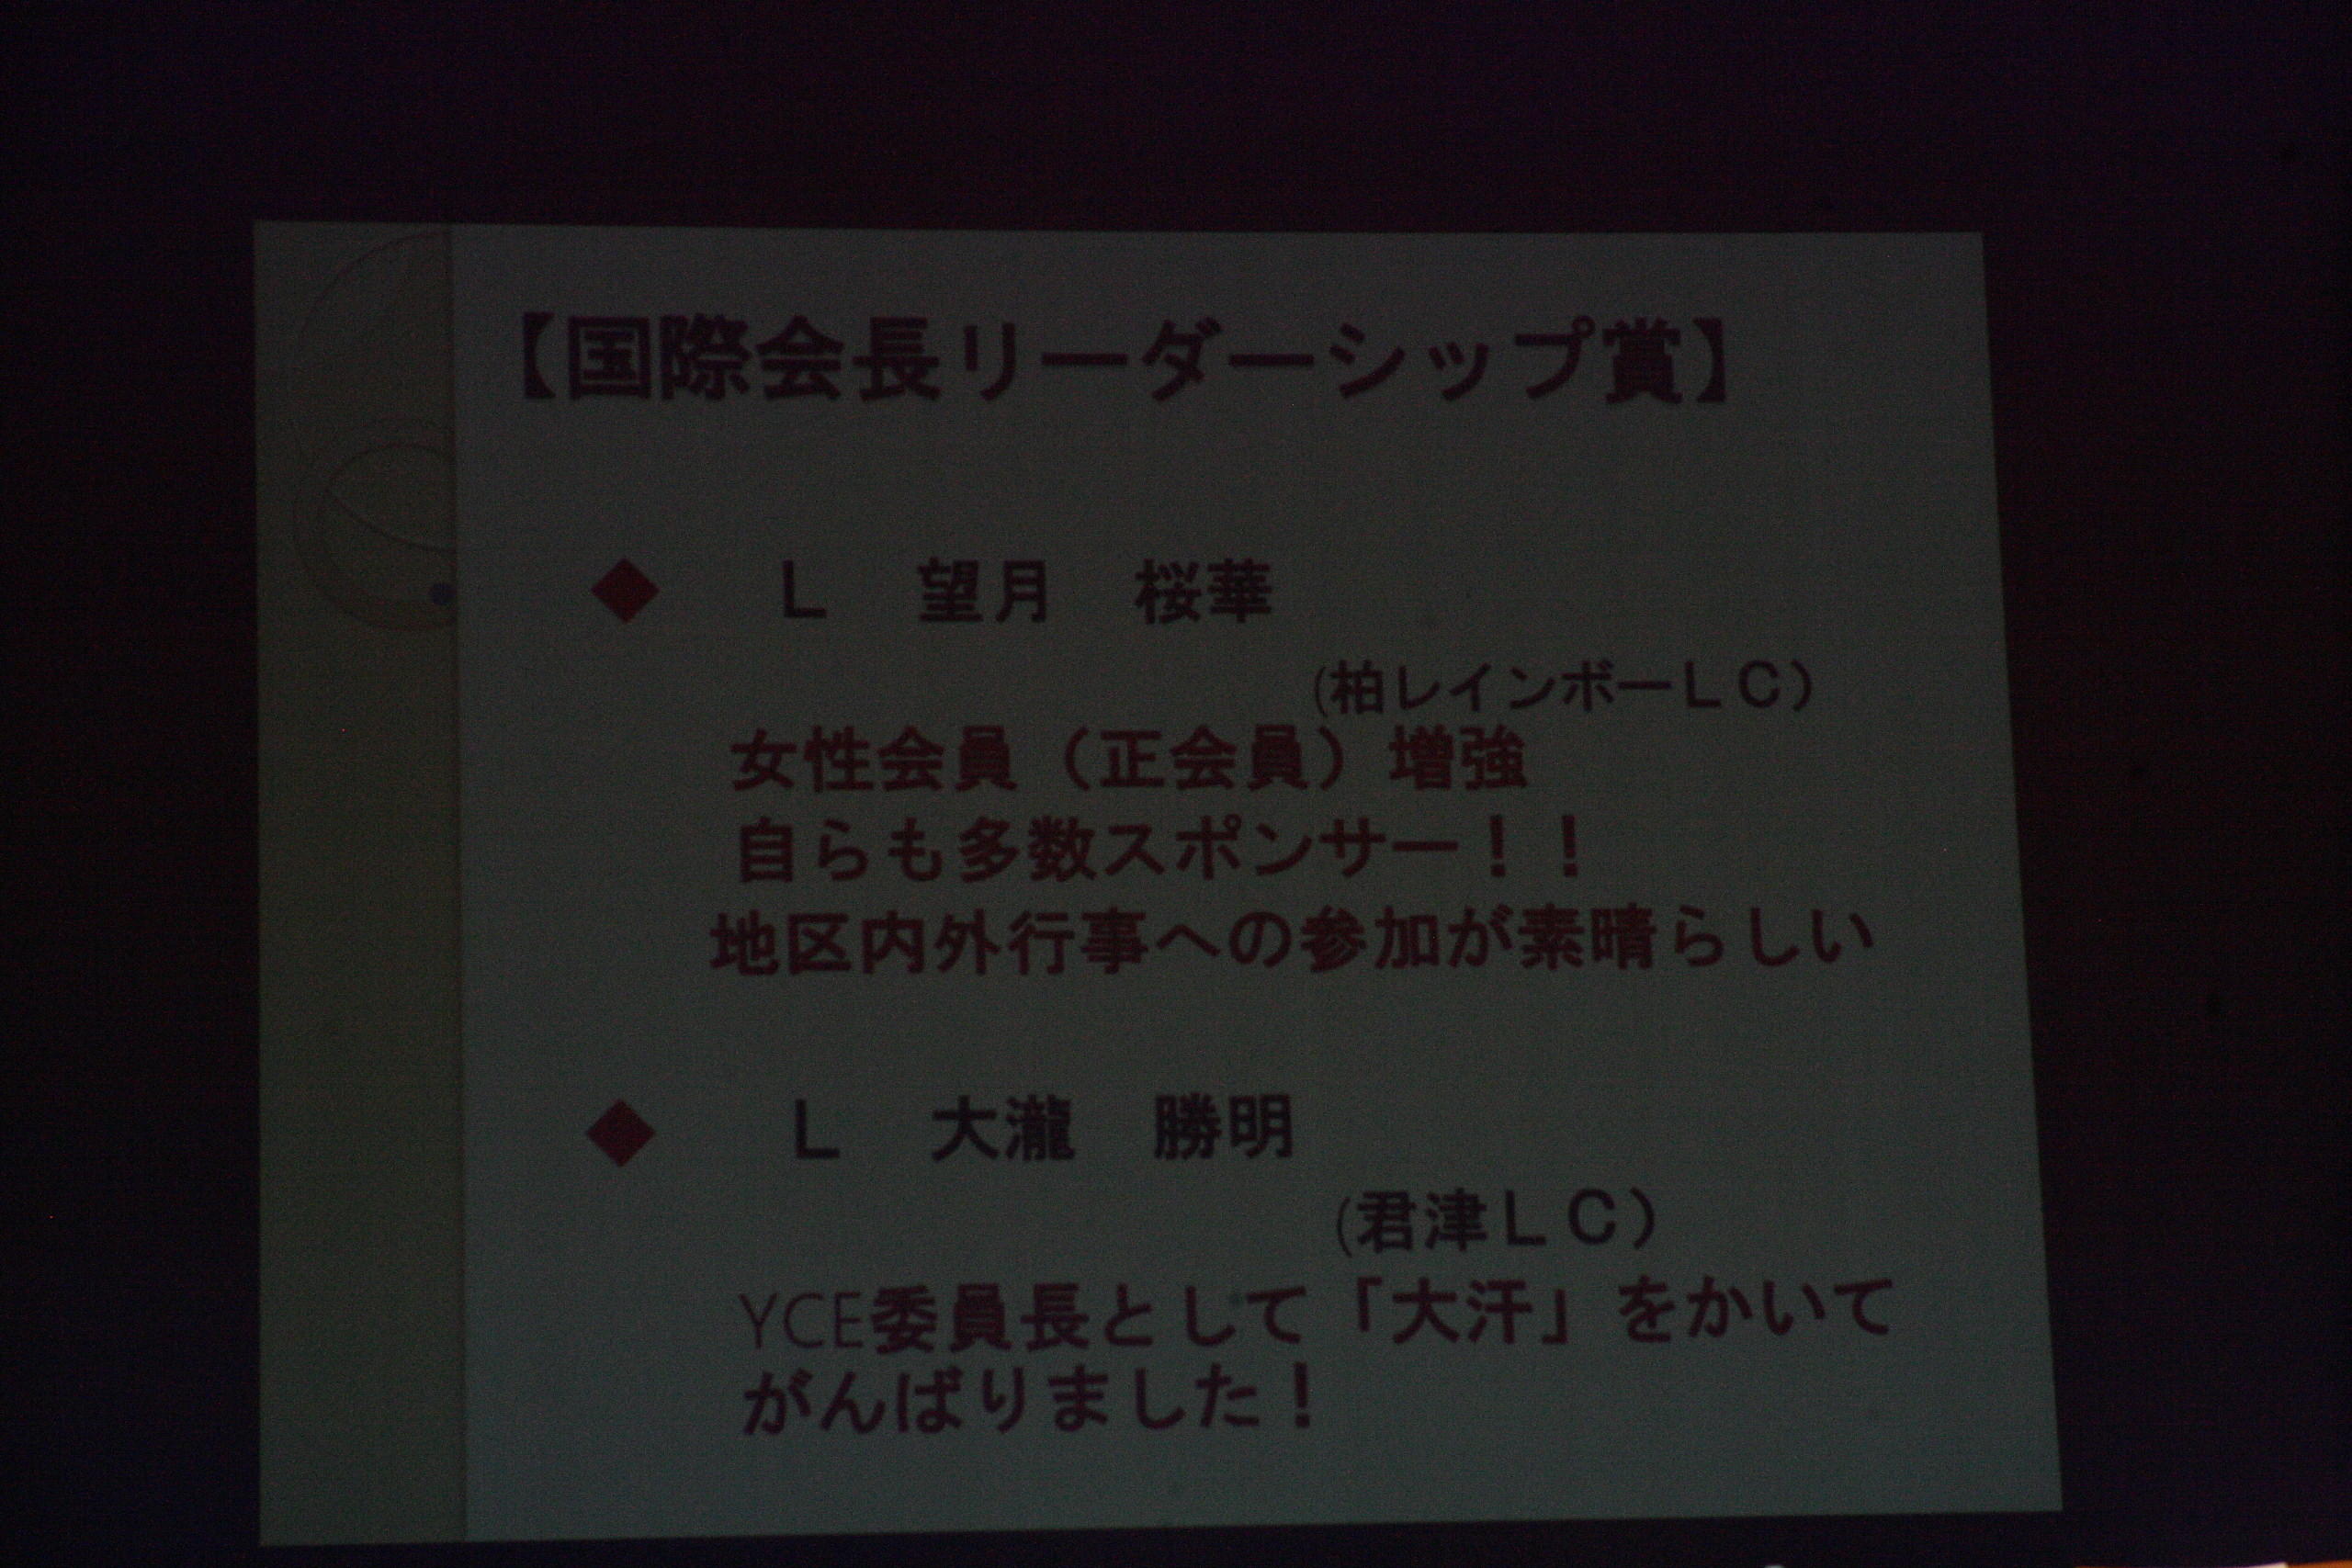 【国際会長リーダーシップ賞】
◆　L　望月　桜華
(柏レインボーＬＣ）
女性会員（正会員）増強
自らも多数スポンサー！！
地区内外行事への参加が素晴らしい
◆　L　大瀧　勝明
(君津ＬＣ）
YCE委員長として「大汗」をかいて
がんばりました！